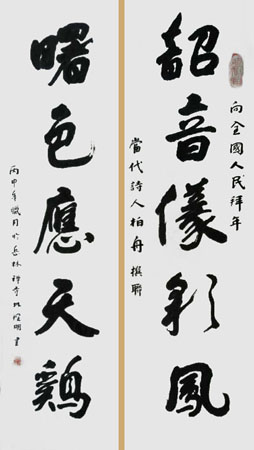 向全國人民拜年
韶音儀彩鳳
當代詩人柏舟撰聯
曙色應天鷄
丙申年臘月於岳林禪寺明書